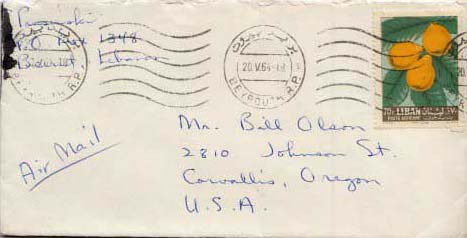 P.O. Box 1348
Lebanon
بيروت
20.V.64-18
BEYROUTH R.P.
70P LIBAN
POSTE AERIENNE
Air Mail
Mr. Bill Olson
2810 Johnson St.
Corvallis, Oregon
U.S.A.